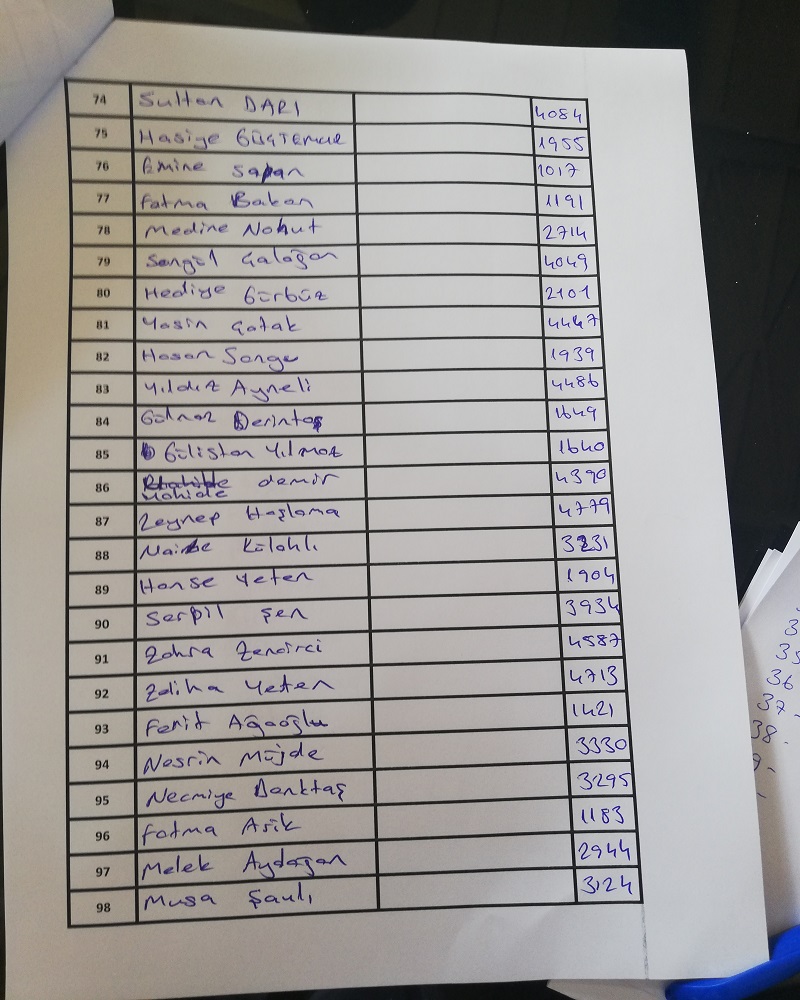 74 Sultan DARI 4084
75 Hasiye GÜÇTEMUR 1955
76 Emine Sapan 1017
77 Fatma Bakan 1191
78 Medine Nohut 2714
79 Songül Çalağan 4049
80 Hediye Gürbüz 2101
81 Yasin Çatak 4447
82 Hasan Songu 1939
83 Yıldız Ayneli 4486
84 Gülnaz Derintaş 1649
85 Gülistan Yılmaz 1640
86 Vahide demir 4390
87 Zeynep Haşlama 4779
88 Naide Külahlı 3231
89 Hanse Yeten 1904
90 Serpil Şen 3934
91 Zohra Zencirci 4587
92 Zeliha Yeten 4713
93 Ferit Ağaoğlu 1421
94 Nesrin Müjde 3330
95 Necmiye Denktaş 3295
96 Fatma Asik 1183
97 Melek Aydoğan 2944
98 Musa Şanlı 3124
36
37
38